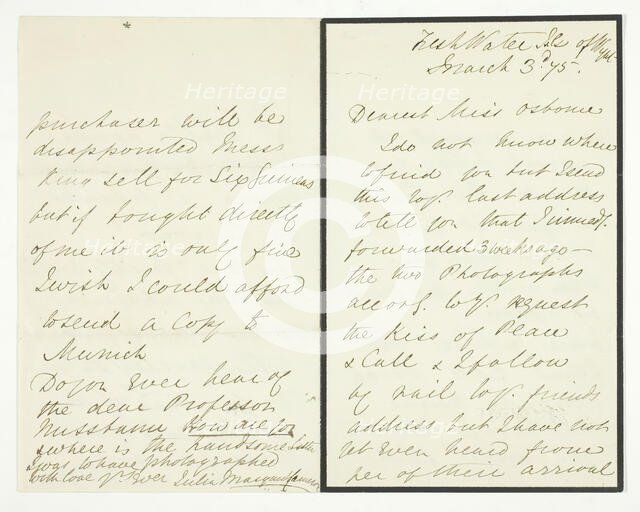 Fresh Water Isle of Wight
March 3d 75.
Dearest Miss Osborne
I do not know where
to find you but I send
this to yr. last address
to tell you that I immedy.
forwarded 3 weeks ago —
the two Photographs
accorg. to yr. request
the Kiss of Peace
& Call & I follow
by rail to yr. friends
address but I have not
yet even heard from
her of their arrival
purchaser will be
disappointed Messrs
King sell for Six Guineas
but if bought directly
of me it is only five
I wish I could afford
to send a copy to
Munich
Do you ever hear of
the dear Professor
How are you
& where is the handsome
I was to have photographed
with love yrs Ever Julia Margaret Cameron
Heritage
Heritage
Heritage
Heritage